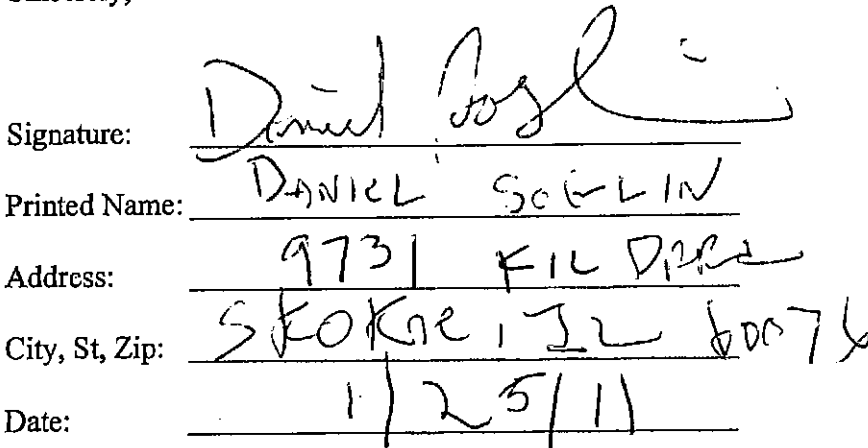 Signature: Daniel
Printed Name: DANIEL
Address: 9731 KILDARE
City, St, Zip: SKOKIE, IL 60076
Date: 1/25/11